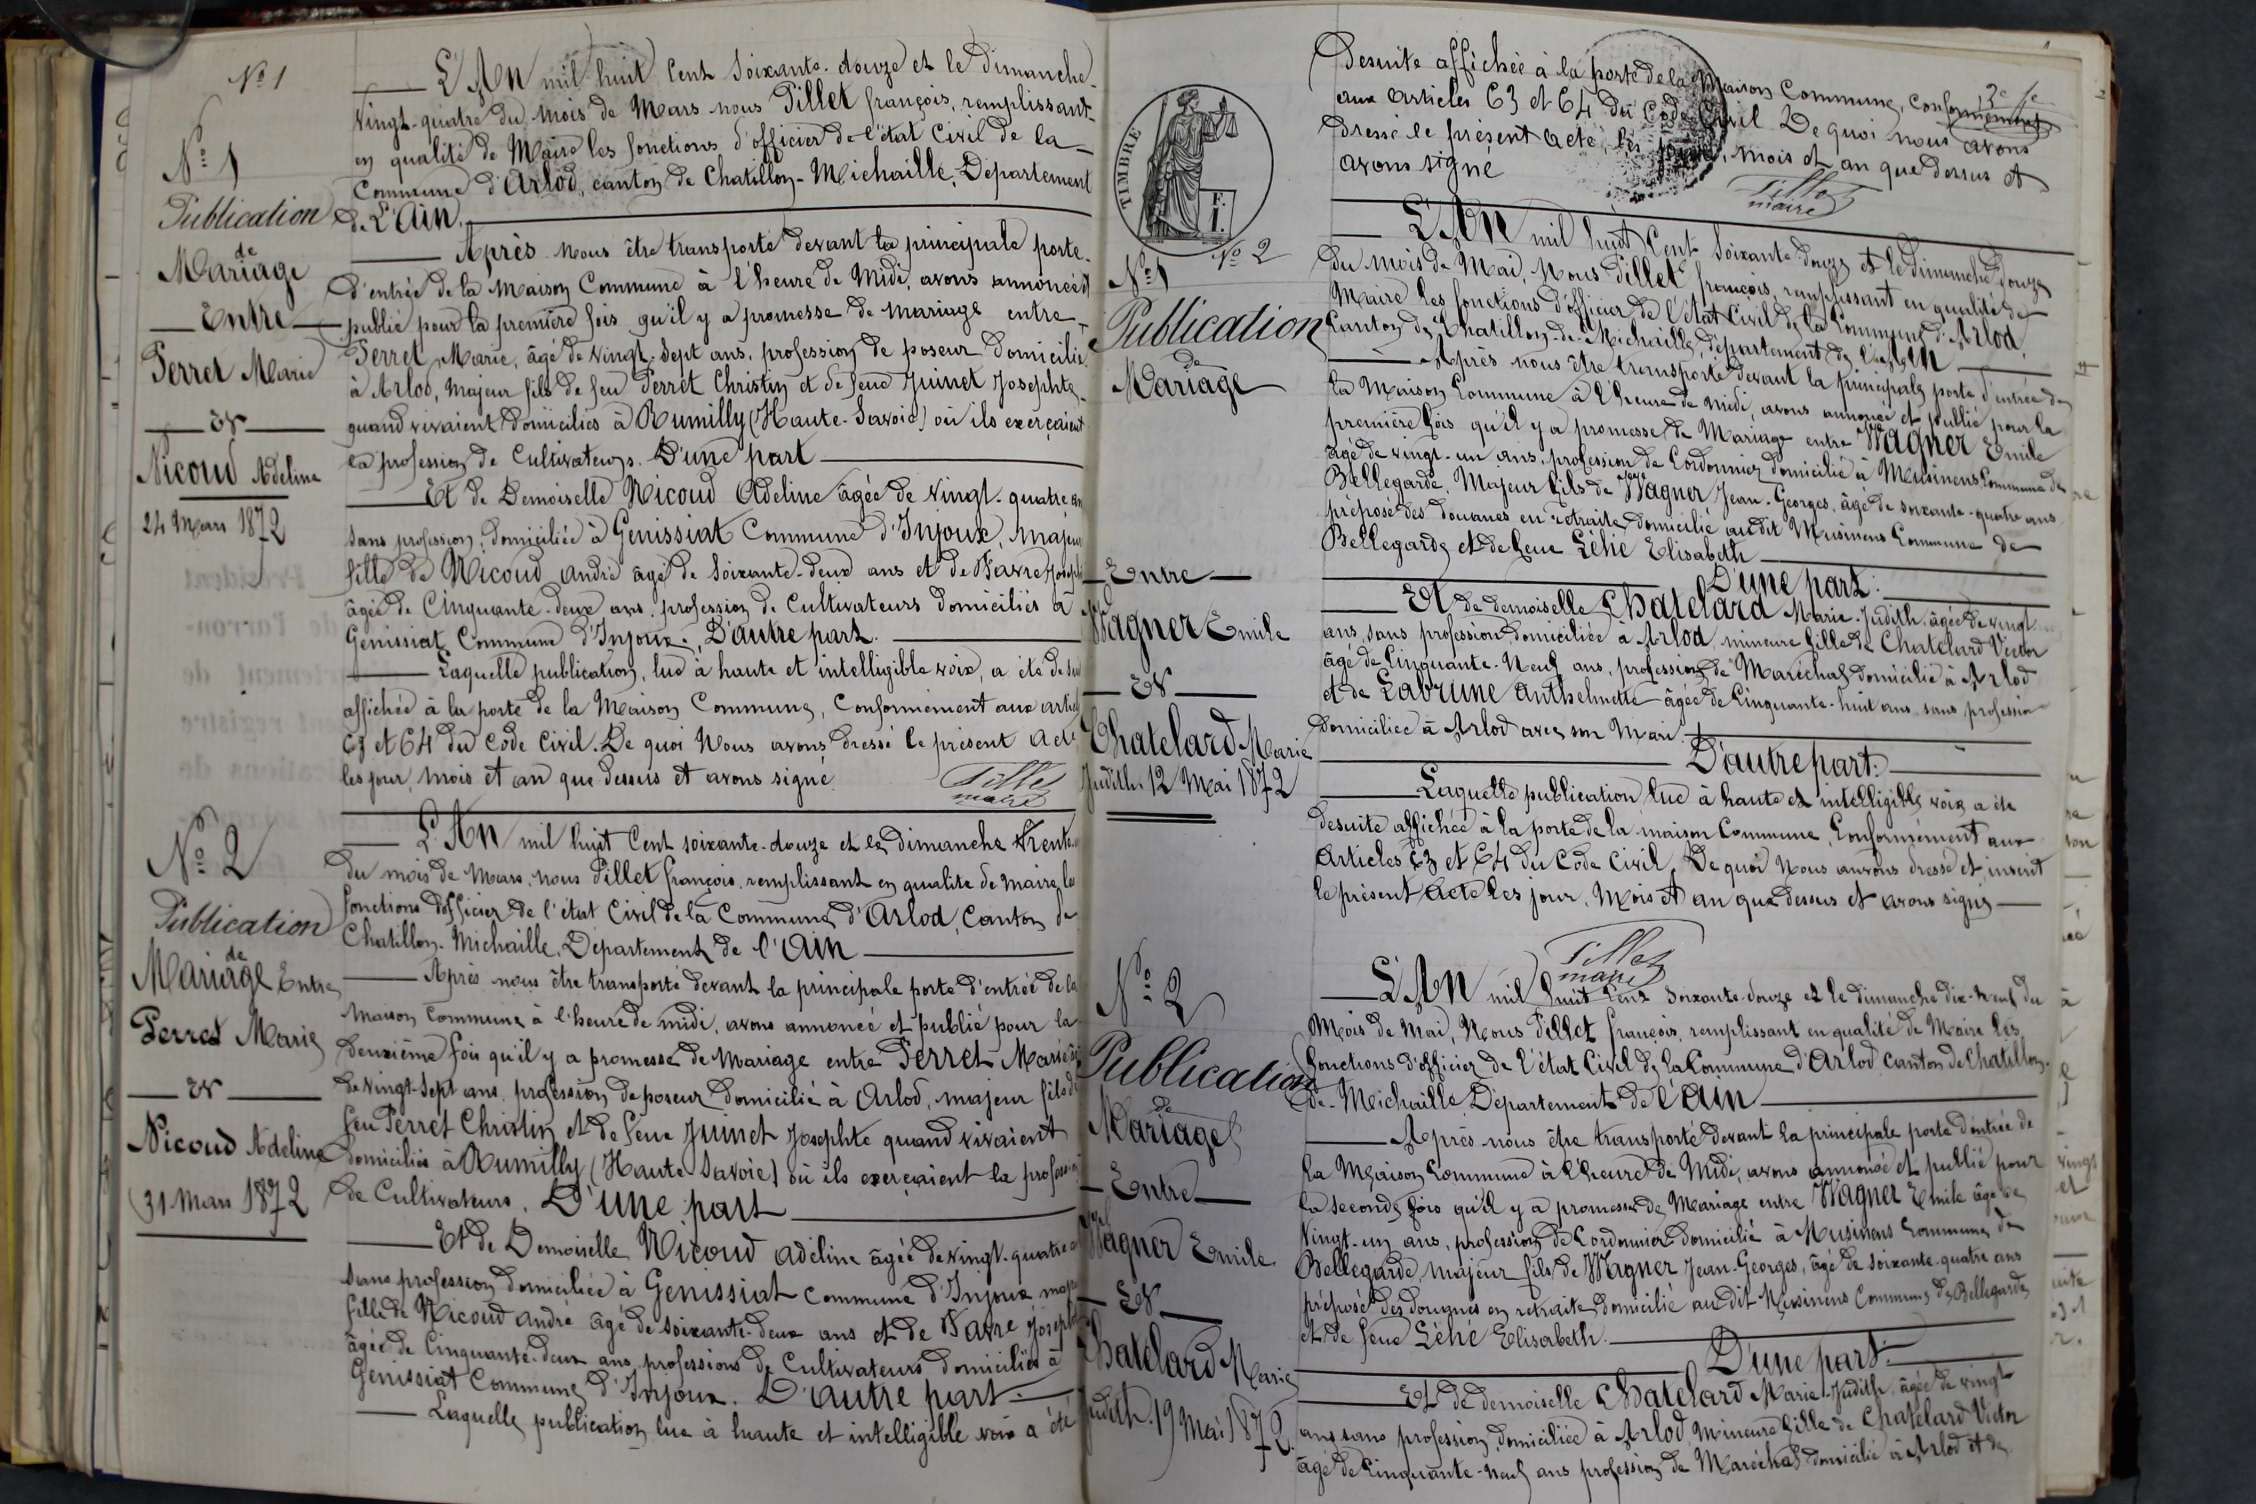 N° 1
N° 1
Publication
de
Mariage
Entre
Perret Marie
et
Nicoud Adeline
24 Mars 1872
L'An mil huit Cent Soixante-douze et le Dimanche
Vingt-quatre du mois de Mars nous Pillet françois, remplissant
en qualité de Maire les fonctions d'officier de l'état Civil de la
Commune d'Arlod, canton de Chatillon-Michaille, Département
de L'Ain.
Après nous être transporté devant la principale porte
d'entrée de la Maison Commune à l'heure de Midi, avons annoncé et
publié pour la première fois qu'il y a promesse de mariage entre
Perret Marie, âgé de vingt-sept ans, profession de poseur domicilié
à Arlod, majeur fils de feu Perret Christin et de feue Juinet Josephte,
quand vivaient domiciliés à Rumilly (Haute-Savoie) où ils exerçaient
la profession de Cultivateurs. D'une part
Et de Demoiselle Nicoud Adeline âgée de vingt-quatre ans
sans profession, domiciliée à Genissiat Commune d'Injoux, majeure
fille de Nicoud andré âgé de Soixante-deux ans et de Favre
âgée de Cinquante-deux ans, profession de Cultivateurs domiciliés à
Genissiat Commune d'Injoux. D'autre part.
Laquelle publication, lue à haute et intelligible voix, a été de
affichée à la porte de la Maison Commune, Conformément aux
63 et 64 du Code Civil. De quoi Nous avons dressé le présent acte
les jour, mois et an que dessus et avons signé
Pillet
maire
N° 2
Publication
de
Mariage Entre
Perret Marie
et
Nicoud Adeline
31 Mars 1872
L'An mil huit Cent soixante-douze et le dimanche trente
du mois de Mars, nous Pillet françois remplissant en qualité de maire les
fonctions d'officier de l'état Civil de la Commune d'Arlod, Canton de
Chatillon-Michaille, Département de l'Ain
Après nous être transporté devant la principale porte d'entrée de la
Maison Commune à l'heure de midi, avons annoncé et publié pour la
deuxième fois qu'il y a promesse de Mariage entre Perret Marie
de vingt-sept ans, profession de poseur domicilié à Arlod, majeur fils de
feu Perret Christin et de feue Juinet Josephte quand vivaient
domiciliés à Rumilly (Haute Savoie) où ils exerçaient la profession
de Cultivateurs. D'une part
Et de Demoiselle Nicoud adeline âgée de vingt-quatre
sans profession domiciliée à Genissiat commune d'Injoux
fille de Nicoud andré âgé de soixante-deux ans et de Favre
âgée de Cinquante-deux ans, professions de Cultivateurs domiciliés à
Genissiat Commune d'Injoux. D'autre part.
Laquelle publication lue à haute et intelligible voix a été
TIMBRE
F.
I.
N° 2
3e
Desuite affichée à la porte de la Maison Commune, Conformément
aux articles 63 et 64 du Code Civil De quoi nous avons
dressé le présent acte, les jour, mois et an que dessus et
avons signé
Pillet
maire
N° 1
Publication
de
Mariage
Entre
Wagner Emile
et
Chatelard Marie
Judith. 12 Mai 1872
L'An mil huit Cent Soixante douze et le dimanche douze
du mois de Mai, Nous Pillet françois, remplissant en qualité de
Maire les fonctions d'officier de l'état Civil de la Commune d'Arlod,
Canton de Chatillon-de-Michaille, département de l'Ain
Après nous être transporté devant la principale porte d'entrée de
la Maison Commune à l'heure de midi, avons annoncé et publié pour la
première fois qu'il y a promesse de Mariage entre Wagner Emile
âgé de vingt-un ans, profession de Cordonnier domicilié à Musinens Commune de
Bellegarde, Majeur fils de Wagner Jean-Georges, âgé de soixante-quatre ans
préposé des douanes en retraite, domicilié audit Musinens Commune de
Bellegarde et de feue Léhé Elisabeth
D'une part.
Et de demoiselle Chatelard Marie-Judith, âgée de vingt
ans, sans profession domiciliée à Arlod, mineure fille de Chatelard Victor
âgé de Cinquante-Neuf ans, profession de Maréchal domicilié à Arlod
et de Labrune Anthelmette âgée de Cinquante-huit ans sans profession
domiciliée à Arlod avec son Mari
D'autre part.
Laquelle publication lue à haute et intelligible voix a été
desuite affichée à la porte de la maison Commune, Conformément aux
Articles 63 et 64 du Code Civil, De quoi Nous avons dressé et inscrit
le présent Acte les jour, Mois et an que dessus et avons signé
Pillet
maire
N° 2
Publication
de
Mariage
Entre
Wagner Emile
et
Chatelard Marie
Judith. 19 Mai 1872.
L'An mil huit Cent Soixante-douze et le dimanche dix-neuf du
Mois de Mai, Nous Pillet françois, remplissant en qualité de Maire les
fonctions d'officier de l'état Civil de la Commune d'Arlod Canton de Chatillon-
de-Michaille Département de l'Ain
Après nous être transporté devant la principale porte d'entrée de
la Maison Commune à l'heure de Midi, avons annoncé et publié pour
la seconde fois qu'il y a promesse de Mariage entre Wagner Emile âgé de
Vingt-un ans, profession de Cordonnier domicilié à Musinens Commune de
Bellegarde, majeur fils de Wagner Jean-Georges, âgé de soixante-quatre ans
préposé des douanes en retraite, domicilié audit Musinens Commune de Bellegarde
et de feue Léhé Elisabeth
D'une part.
Et de demoiselle Chatelard Marie-Judith âgée de vingt
ans sans profession, domiciliée à Arlod, Mineure fille de Chatelard Victor
âgé de Cinquante-neuf ans profession de Maréchal domicilié à Arlod et de